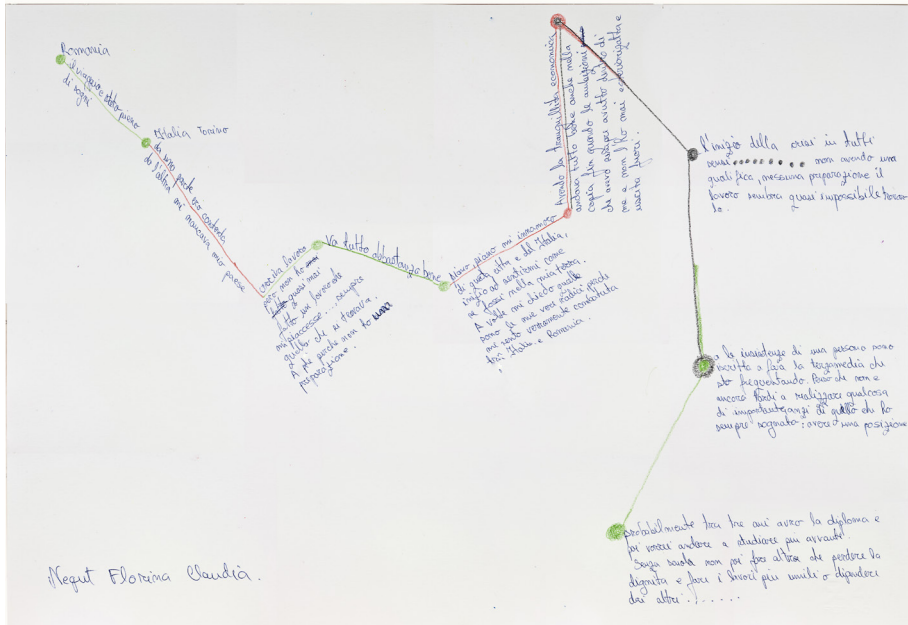 Romania
il viaggio è stato pieno
di sogni
Italia Torino
da una parte ero contenta
da l'altra mi mancava mio paese
uscita lavoro
però non ho
quasi mai
fatto un lavoro che
mi piaccesse... sempre
quello che si trovava.
A più perche non ho
preparazione.
Va tutto abbastanza bene
Piano piano mi innamoro
di questa citta e del Italia,
inizio ad sentirmi come
se fossi nella mia terra.
A volte mi chiedo quale
sono le mie vere radici perche
mi sento veramente combattuta
tra Italia e Romania.
Avendo la tranquillita economica
andava tutto bene anche nella
copia fin quando le ambizioni
che avevo sempre avuto dentro di
me e non l'ho mai
uscita fuori.
L'inizio della crisi in tutti
sensi.......... non avendo una
qualifica, nessuna preparazione il
lavoro sembra quasi impossibile trovar
lo.
a la insistenza di una persona sono
iscritta a fare la terzamedia che
sto frequentando. Penso che non e
ancora tardi a realizzare qualcosa
di importante anzi di quello che ho
sempre sognato: avere una posizione
probabilmente tra tre ani avro la diploma e
poi vorrei andare a studiare piu avvanti.
Senza scuola non poi fare altro che perdere la
dignita e fare i lavori piu umili o dipendere
dai altri.......
Negut Florina Claudia.